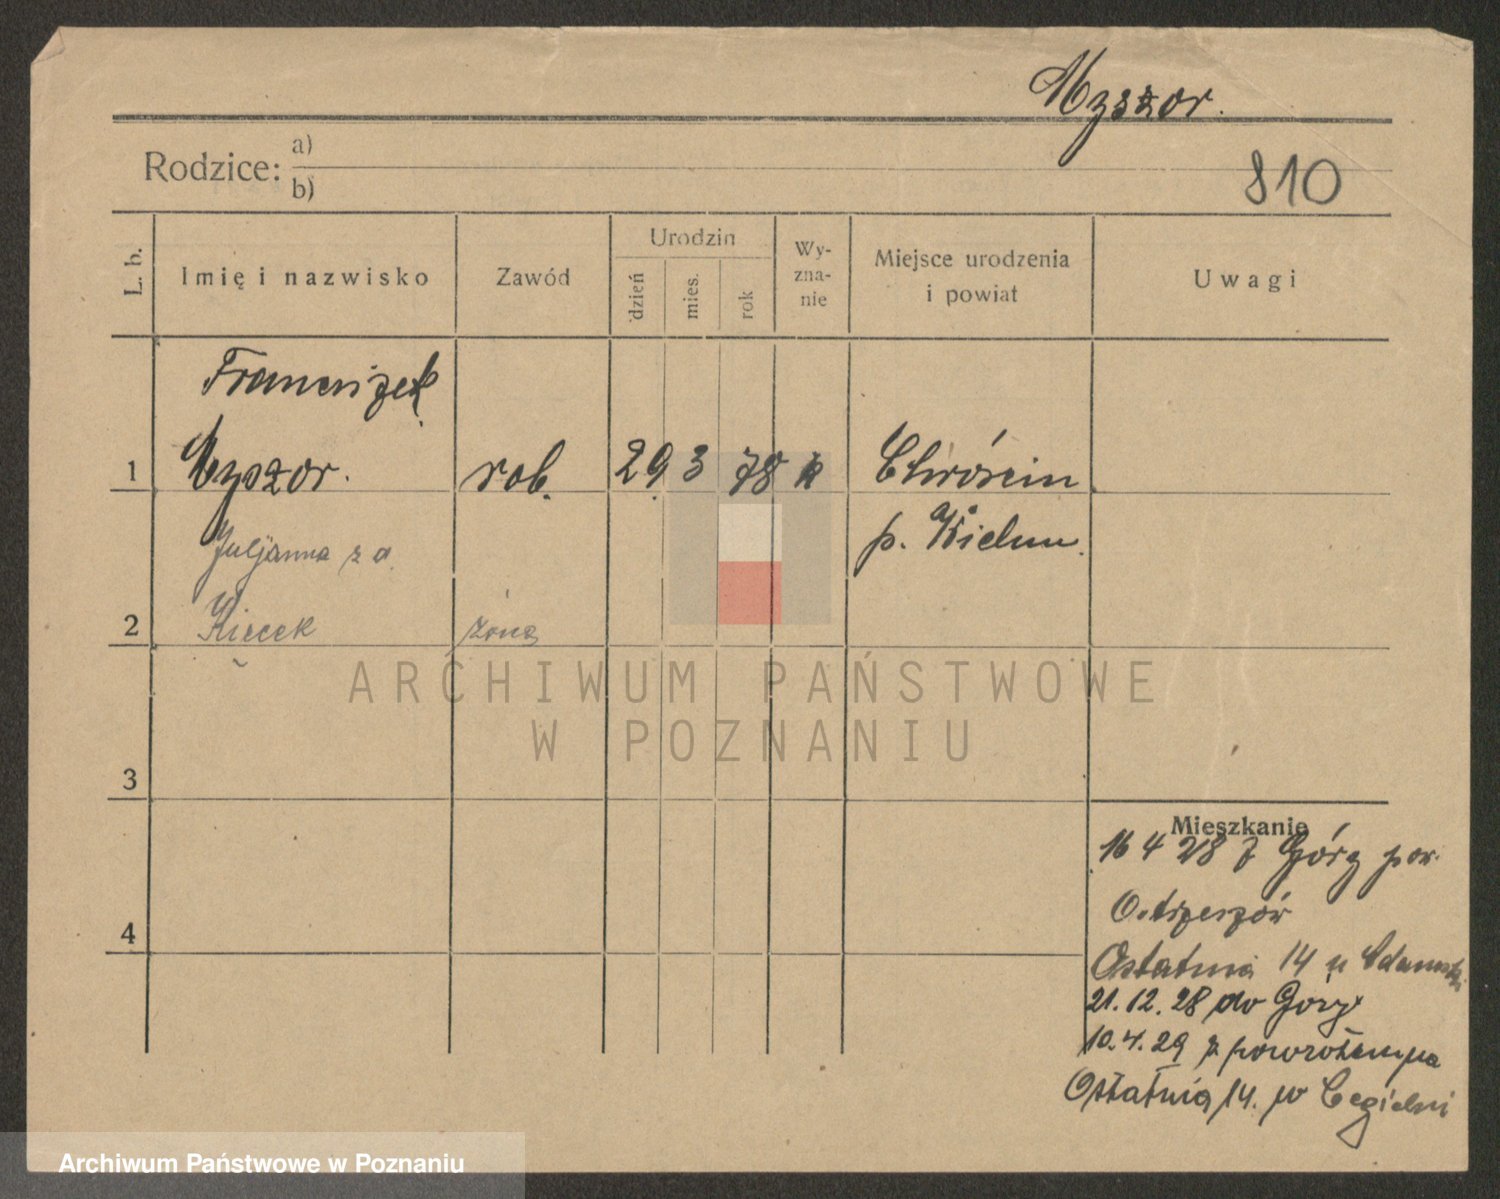 Myszor.
Rodzice: a)
b)
810
L. b.
Imię i nazwisko
Zawód
Urodzin
dzień
mies.
rok
Wy-
zna-
nie
Miejsce urodzenia
i powiat
Uwagi
Franciszek
1 Myszor. rob. 29 3 78 k Chróścin
p. Wielun.
Juljanna z d.
2 Kiecek żona
3
Mieszkanie
16 4 28 z Góry pow.
Ostrzeszów
4
Ostatnia 14 u
21.12.28 do Góry
10.4.29 z powrotem na
Ostatnia 14. w Cegielni
ARCHIWUM PAŃSTWOWE
W POZNANIU
Archiwum Państwowe w Poznaniu